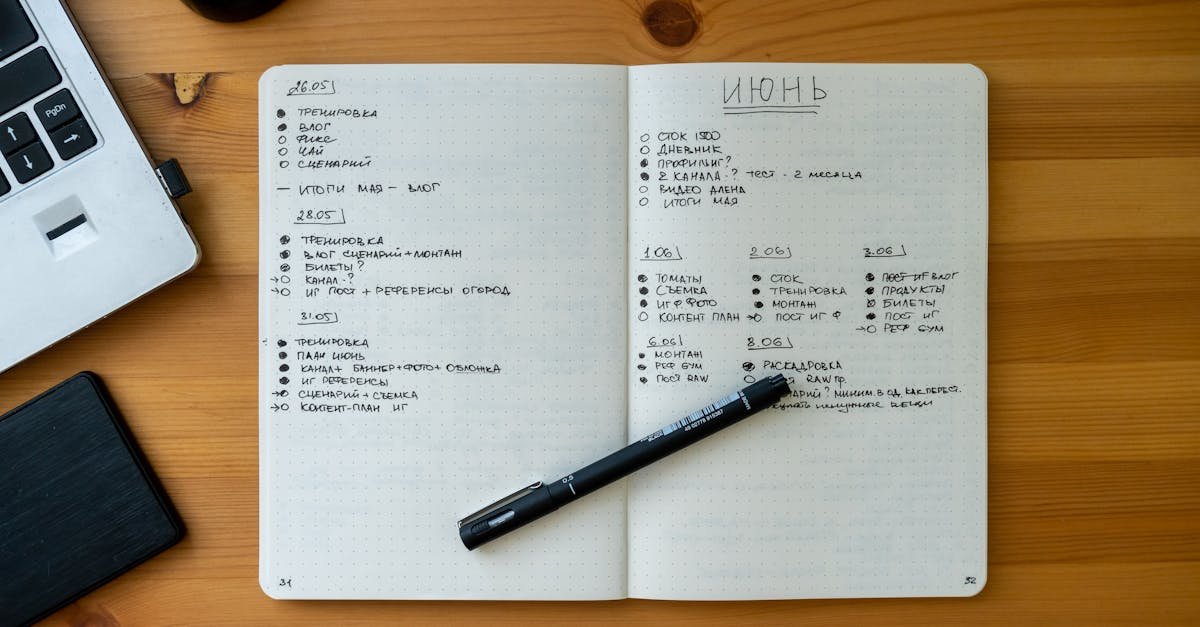 PgDn
26.05
● ТРЕНИРОВКА
● ВЛОГ
○ ФИКС
○ ЧАЙ
○ СЦЕНАРИЙ
— ИТОГИ МАЯ — ВЛОГ
28.05
● ТРЕНИРОВКА
● ВЛОГ СЦЕНАРИЙ+МОНТАЖ
● БИЛЕТЫ?
→○ КАНАЛ-?
→○ ИГ ПОСТ + РЕФЕРЕНСЫ ОГОРОД
31.05
● ТРЕНИРОВКА
● ПЛАН ИЮНЬ
● КАНАЛ+ БАННЕР+ФОТО+ ОБЛОЖКА
● ИГ РЕФЕРЕНСЫ
→○ СЦЕНАРИЙ + СЪЕМКА
→○ КОНТЕНТ-ПЛАН ИГ
31
ИЮНЬ
○ СТОК 1500
○ ДНЕВНИК
● ПРОФИЛЬ ИГ?
● 2 КАНАЛА-? ТЕСТ - 2 месяца
○ ВИДЕО АЛЕНА
○ ИТОГИ МАЯ
1.06
● ТОМАТЫ
● СЪЕМКА
● ИГ Ф. ФОТО
○ КОНТЕНТ ПЛАН
2.06
● СТОК
● ТРЕНИРОВКА
● МОНТАЖ
→○ ПОСТ ИГ Ф
3.06
● ПОСТ ИГ ВЛОГ
● ПРОДУКТЫ
☒ БИЛЕТЫ
● ПОСТ ИГ
→○ РЕФ БУМ
6.06
● МОНТАЖ
● РЕФ БУМ
● ПОСТ RAW
8.06
● РАСКАДРОВКА
○ RAW
? МИНИМ. В ОД. КАК ПЕРЕСТ.
ненужные вещи
32
0.5